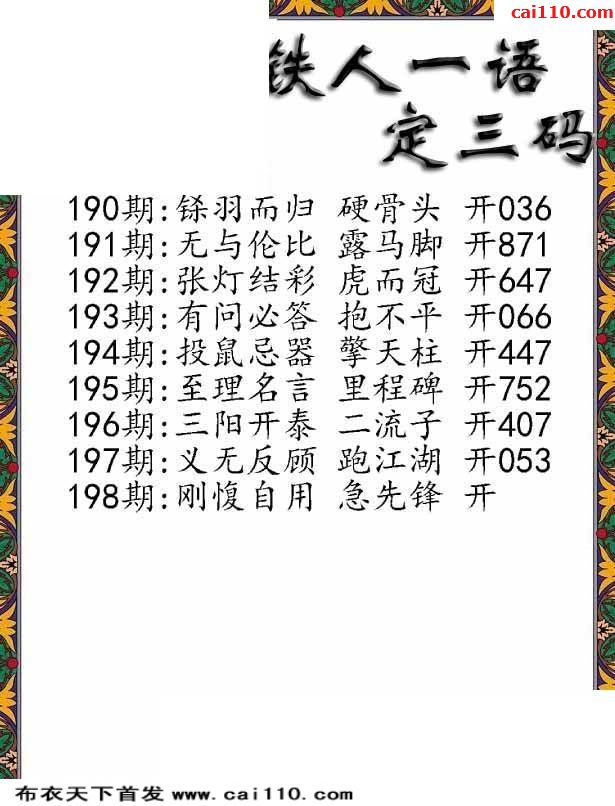 cai110.com
铁人一语
定三码
190期:铩羽而归 硬骨头 开036
191期:无与伦比 露马脚 开871
192期:张灯结彩 虎而冠 开647
193期:有问必答 抱不平 开066
194期:投鼠忌器 擎天柱 开447
195期:至理名言 里程碑 开752
196期:三阳开泰 二流子 开407
197期:义无反顾 跑江湖 开053
198期:刚愎自用 急先锋 开
布衣天下首发 www.cai110.com